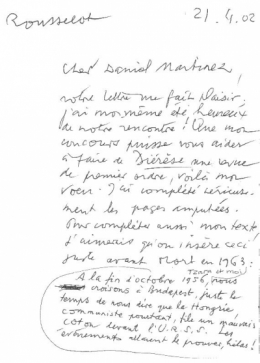 Rousselot
21.4.02
Cher Daniel Martinez,
votre lettre me fait plaisir,
j'ai moi-même été heureux
de notre rencontre! Que mon
concours puisse vous aider
à faire de Diérèse une revue
de premier ordre, voilà mon
voeu. J'ai complété sérieuse-
ment les pages amputées.
Pour compléter aussi mon texte,
j'aimerais qu'on insère ceci
juste avant mort en 1963:
A la fin d'octobre 1956, nous
Tzara et moi
croisons à Budapest. Juste le
temps de nous dire que la Hongrie
communiste pourtant, file un mauvais
coton devant l'U.R.S.S. Les
évènements allaient le prouver, hélas!